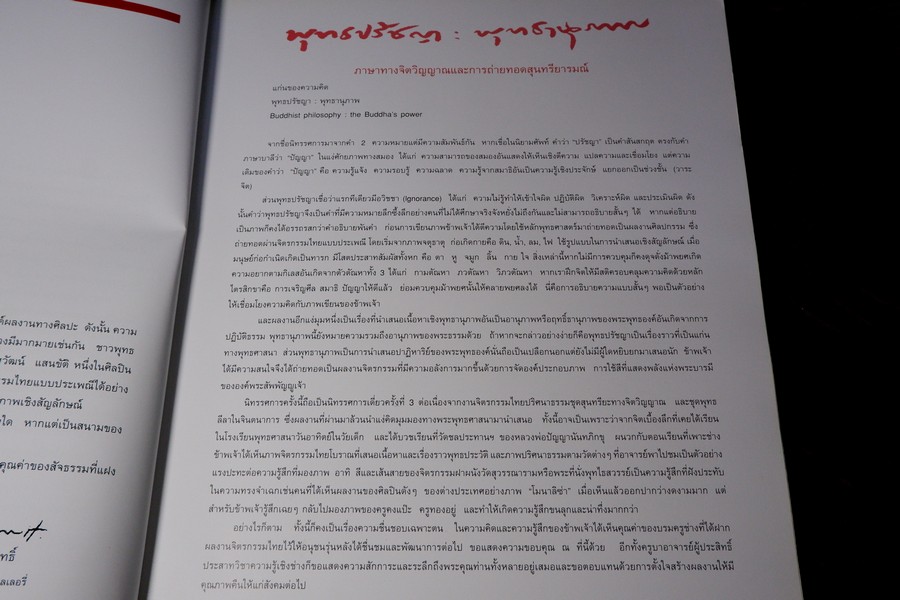 พุทธปรัชญา : พุทธานุภาพ
ภาษาทางจิตวิญญาณและการถ่ายทอดสุนทรียารมณ์
แก่นของความคิด
พุทธปรัชญา : พุทธานุภาพ
Buddhist philosophy : the Buddha's power
จากชื่อนิทรรศการมาจากคำ 2 ความหมายแต่มีความสัมพันธ์กัน หากเชื่อในนิยามศัพท์ คำว่า "ปรัชญา" เป็นคำสันสกฤต ตรงกับคำ
ภาษาบาลีว่า "ปัญญา" ในแง่ศักยภาพทางสมอง ได้แก่ ความสามารถของสมองอันแสดงให้เห็นเชิงตีความ แปลความและเชื่อมโยง แต่ความ
เดิมของคำว่า "ปัญญา" คือ ความรู้แจ้ง ความรอบรู้ ความฉลาด ความรู้จากสมาธิอันเป็นความรู้เชิงประจักษ์ แยกออกเป็นช่วงชั้น (วาระ
จิต)
ส่วนพุทธปรัชญาเชื่อว่าแรกทีเดียวมีอวิชชา (Ignorance) ได้แก่ ความไม่รู้ทำให้เข้าใจผิด ปฏิบัติผิด วิเคราะห์ผิด และประเมินผิด ดัง
นั้นคำว่าพุทธปรัชญาจึงเป็นคำที่มีความหมายลึกซึ้งลึกอย่างคนที่ไม่ได้ศึกษาจริงจังหยั่งไม่ถึงกันและไม่สามารถอธิบายสั้นๆ ได้ หากแต่อธิบาย
เป็นภาพก็คงได้อรรถรสกว่าคำอธิบายพันคำ ก่อนการเขียนภาพข้าพเจ้าได้ตีความโดยใช้หลักพุทธศาสตร์มาถ่ายทอดเป็นผลงานศิลปกรรม ซึ่ง
ถ่ายทอดผ่านจิตรกรรมไทยแบบประเพณี โดยเริ่มจากภาพจตุธาตุ ก่อเกิดกายคือ ดิน, น้ำ, ลม, ไฟ ใช้รูปแบบในการนำเสนอเชิงสัญลักษณ์ เมื่อ
มนุษย์ก่อกำเนิดเกิดเป็นทารก มีโสตประสาทสัมผัสทั้งหก คือ ตา หู จมูก ลิ้น กาย ใจ สิ่งเหล่านี้หากไม่มีการควบคุมก็คงดุจดั่งม้าพยศเกิด
ความอยากตามกิเลสอันเกิดจากตัวตัณหาทั้ง 3 ได้แก่ กามตัณหา ภวตัณหา วิภวตัณหา หากเราฝึกจิตให้มีสติครอบคลุมความคิดด้วยหลัก
ไตรสิกขาคือ การเจริญศีล สมาธิ ปัญญาให้ดีแล้ว ย่อมควบคุมม้าพยศนั้นให้คลายพยศลงได้ นี่คือการอธิบายความแบบสั้นๆ พอเป็นตัวอย่าง
ให้เชื่อมโยงความคิดกับภาพเขียนของข้าพเจ้า
และผลงานอีกแง่มุมหนึ่งเป็นเรื่องที่นำเสนอเนื้อหาเชิงพุทธานุภาพอันเป็นอานุภาพหรือฤทธิ์อานุภาพของพระพุทธองค์อันเกิดจากการ
ปฏิบัติธรรม พุทธานุภาพนี้ยังหมายความรวมถึงอานุภาพของพระธรรมด้วย ถ้าหากจะกล่าวอย่างง่ายก็คือพุทธปรัชญาเป็นเรื่องราวที่เป็นแก่น
ทางพุทธศาสนา ส่วนพุทธานุภาพเป็นการนำเสนอปาฏิหาริย์ของพระพุทธองค์นั่นถือเป็นเปลือกนอกแต่ยังไม่มีผู้ใดหยิบยกมาเสนอนัก ข้าพเจ้า
ได้มีความสนใจจึงได้ถ่ายทอดเป็นผลงานจิตรกรรมที่มีความอลังการมากขึ้นด้วยการจัดองค์ประกอบภาพ การใช้สีที่แสดงพลังแห่งพระบารมี
ขององค์พระสัพพัญญูเจ้า
นิทรรศการครั้งนี้ถือเป็นนิทรรศการเดี่ยวครั้งที่ 3 ต่อเนื่องจากงานจิตรกรรมไทยปริศนาธรรมชุดสุนทรียะทางจิตวิญญาณ และชุดพุทธ
ลีลาในจินตนาการ ซึ่งผลงานที่ผ่านมาล้วนนำแง่คิดมุมมองทางพระพุทธศาสนามานำเสนอ ทั้งนี้อาจเป็นเพราะว่าจากจิตเบื้องลึกที่เคยได้เรียน
ในโรงเรียนพุทธศาสนาวันอาทิตย์ในวัยเด็ก และได้บวชเรียนที่วัดชลประทานฯ ของหลวงพ่อปัญญานันทภิกขุ ผนวกกับตอนเรียนที่เพาะช่าง
ข้าพเจ้าได้เห็นภาพจิตรกรรมไทยโบราณที่เสนอเนื้อหาและเรื่องราวพุทธประวัติ และภาพปริศนาธรรมตามวัดต่างๆ ที่อาจารย์พาไปชมเป็นตัวอย่าง
แรงปะทะต่อความรู้สึกที่มองภาพ อาทิ สีและเส้นสายของจิตรกรรมฝาผนังวัดสุวรรณารามหรือพระที่นั่งพุทไธสวรรย์เป็นความรู้สึกที่ฝังประทับ
ในความทรงจำแฉกเช่นคนที่ได้เห็นผลงานของศิลปินดังๆ ของต่างประเทศอย่างภาพ "โมนาลิซ่า" เมื่อเห็นแล้วออกปากว่างดงามมาก แต่
สำหรับข้าพเจ้ารู้สึกเฉยๆ กลับไปมองภาพของครูคงแป๊ะ ครูทองอยู่ และทำให้เกิดความรู้สึกขนลุกและน่าทึ่งมากกว่า
อย่างไรก็ตาม ทั้งนี้ก็คงเป็นเรื่องความชื่นชอบเฉพาะตน ในความคิดและความรู้สึกของข้าพเจ้าได้เห็นคุณค่าของบรมครูช่างที่ได้ฝาก
ผลงานจิตรกรรมไทยไว้ให้อนุชนรุ่นหลังได้ชื่นชมและพัฒนาการต่อไป ขอแสดงความขอบคุณ ณ ที่นี้ด้วย อีกทั้งครูบาอาจารย์ผู้ประสิทธิ์
ประสาทวิชาความรู้เชิงช่างก็ขอแสดงความสักการะและระลึกถึงพระคุณท่านทั้งหลายอยู่เสมอและขอตอบแทนด้วยการตั้งใจสร้างผลงานให้มี
คุณภาพคืนให้แก่สังคมต่อไป
ต์ผลงานทางศิลปะ ดังนั้น ความ
องมีมากมายเช่นกัน ชาวพุทธ
วัฒน์ แสนขัติ หนึ่งในศิลปิน
รรมไทยแบบประเพณีได้อย่าง
ภาพเชิงสัญลักษณ์
ใด หากแต่เป็นสนามของ
คุณค่าของสัจธรรมที่แฝง
ทธิ์
ลเลอรี่